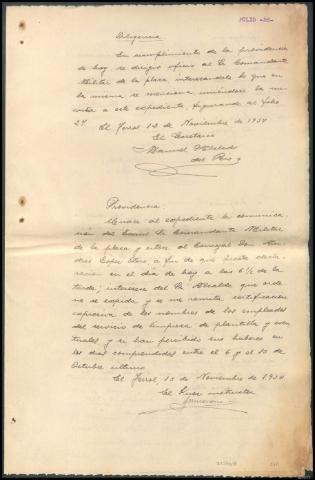 JULIO -36-
Diligencia
En cumplimiento de la providencia
de hoy se dirigió oficio al Sr Comandante
Militar de la plaza interesandole lo que en
la misma se menciona uniéndose la mi-
nuta a este expediente, figurando al folio
27. El Ferrol 13 de Noviembre de 1937
El Secretario
Manuel
del Rio
Providencia.
Unase al expediente la comunica-
ción del Excmo Sr Comandante Militar
de la plaza y citese al Concejal Don An-
drés a fin de que preste decla-
ración en el dia de hoy a las 6½ de la
tarde; interesese del Sr Alcalde que orde-
ne se expida y se me remita certificación
expresiva de los nombres de los empleados
del servicio de limpieza de plantilla y even-
tuales y si han percibido sus haberes en
los dias comprendidos entre el 6 y el 10 de
Octubre ultimo.
El Ferrol, 15 de Noviembre de 1937
El Juez instructor